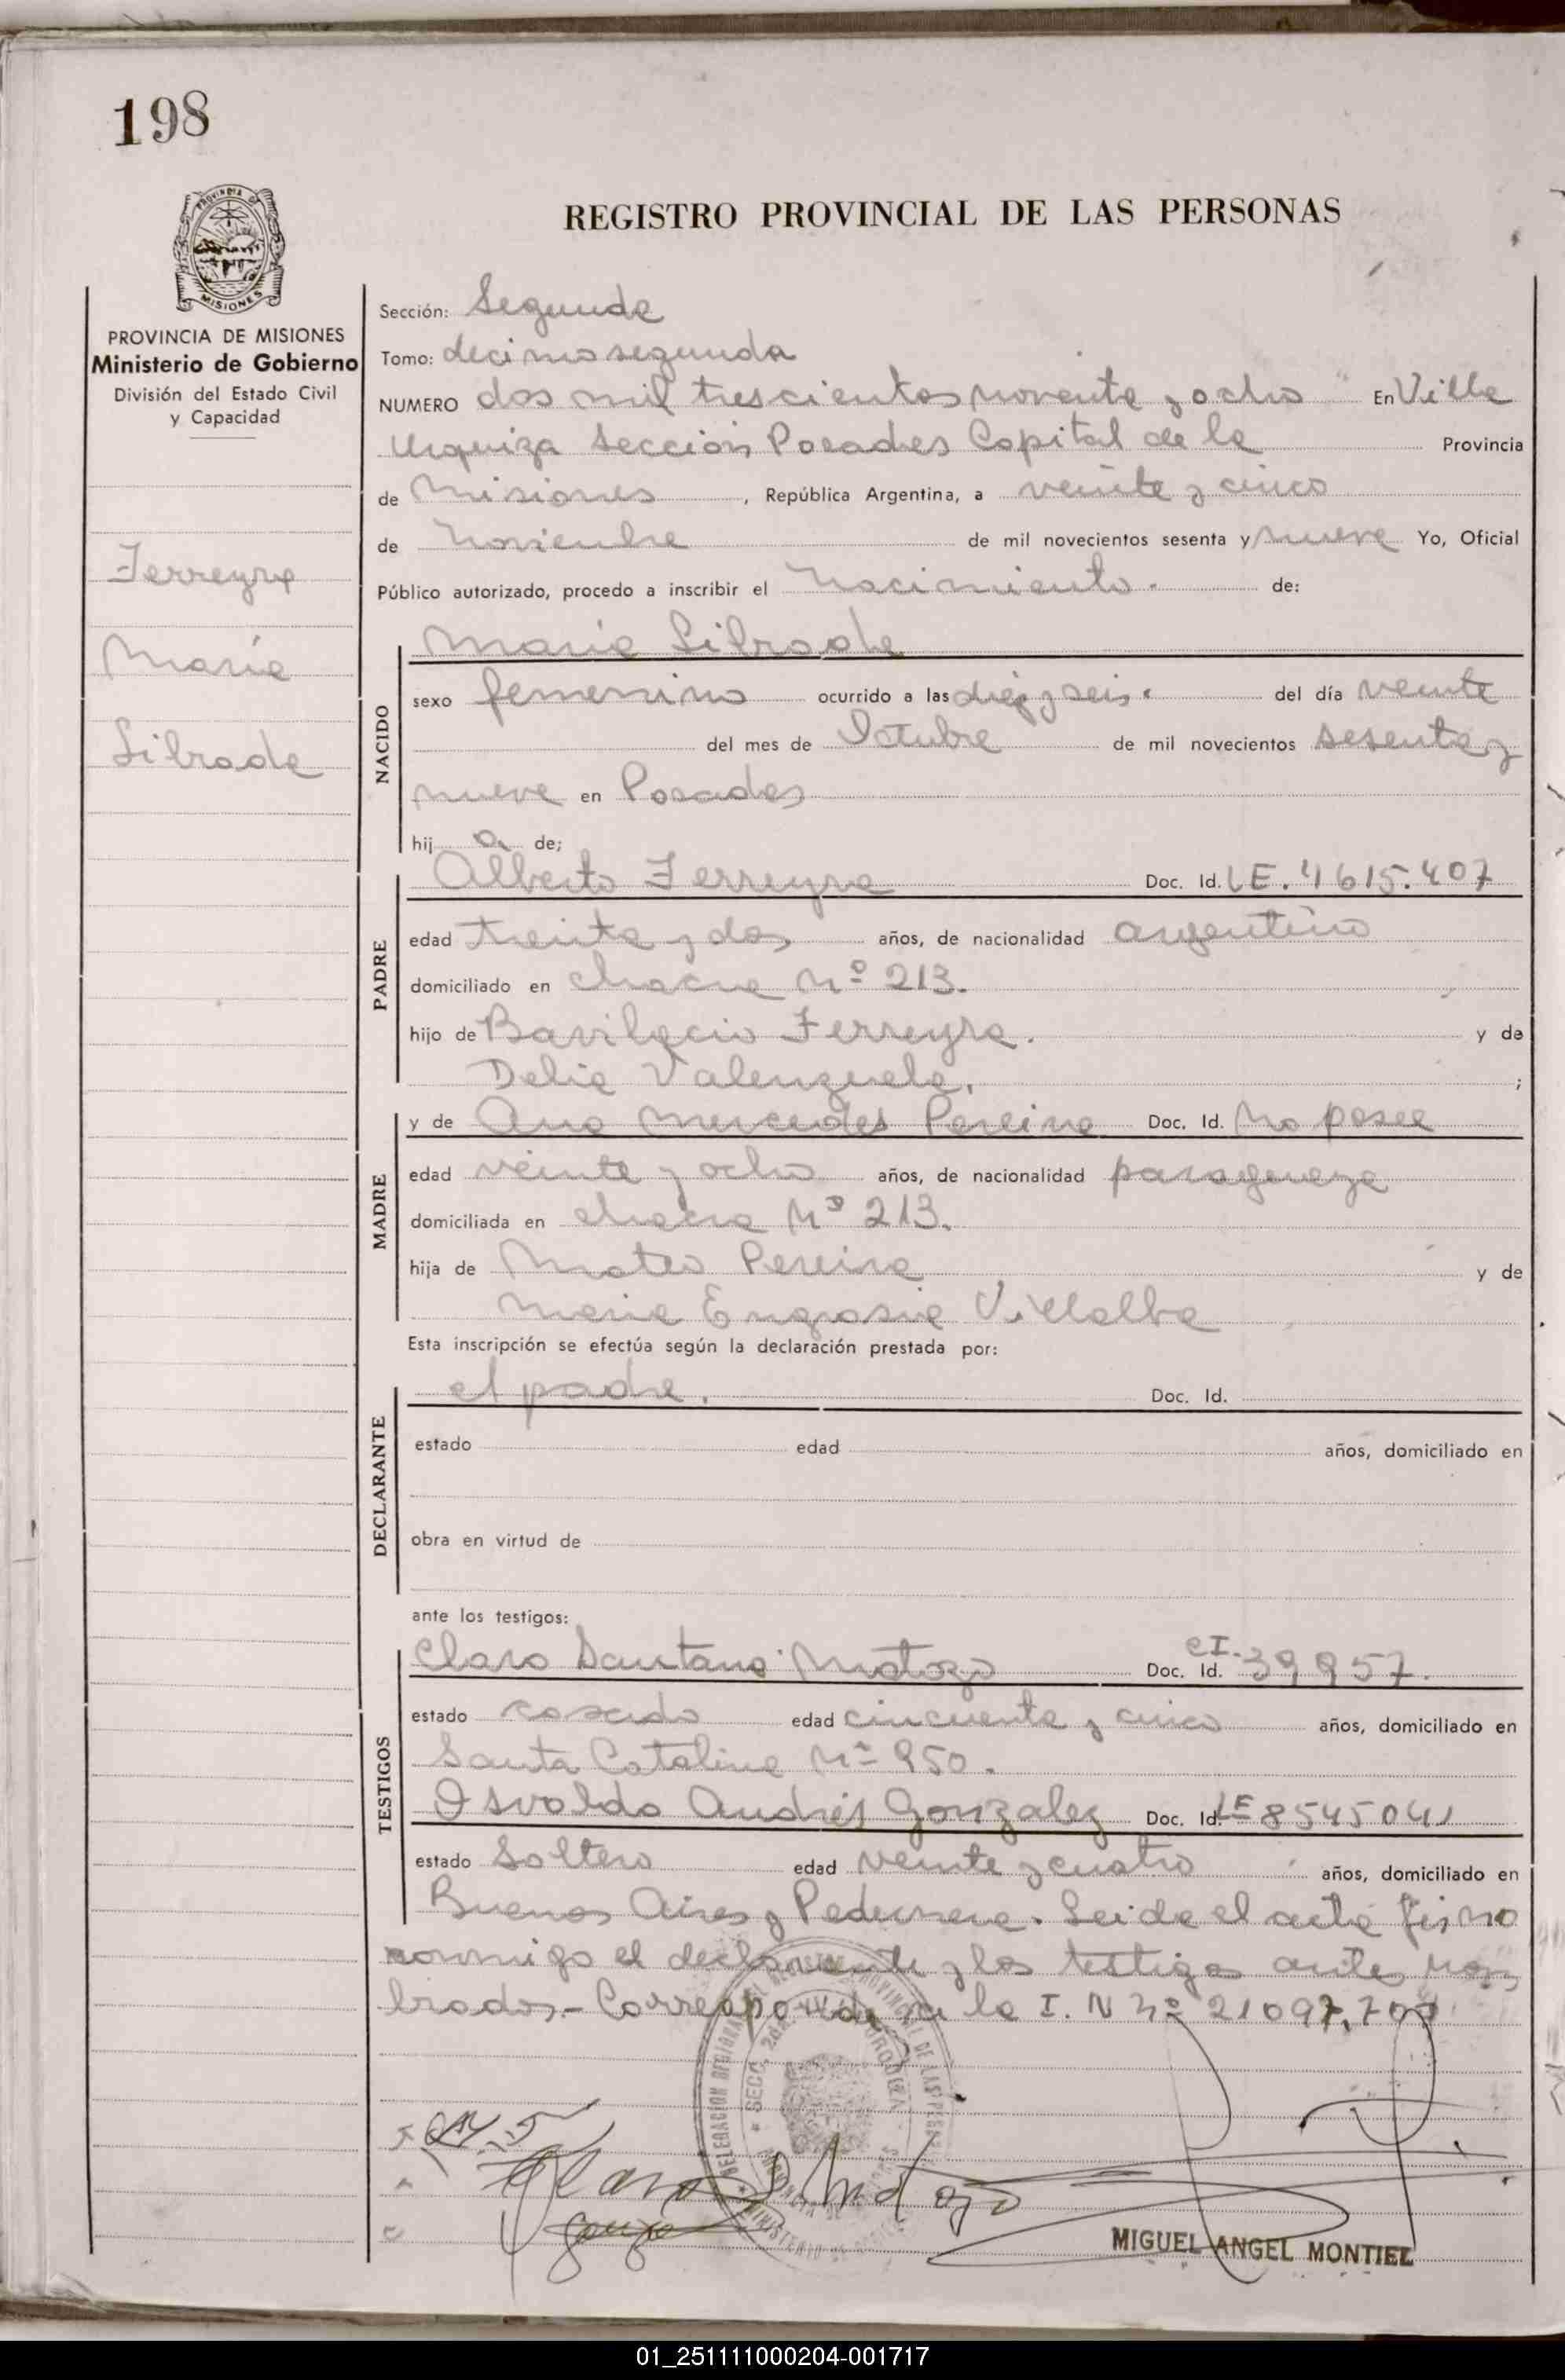 198
PROVINCIA DE MISIONES
Ministerio de Gobierno
División del Estado Civil
y Capacidad
Ferreyra
María
Librada
REGISTRO PROVINCIAL DE LAS PERSONAS
Sección: Segunda
Tomo: decimo segunda
NUMERO dos mil trescientos noventa y ocho En Villa
Urquiza Sección Posadas Capital de la Provincia
de Misiones, República Argentina, a veinte y cinco
de Noviembre de mil novecientos sesenta y nueve Yo, Oficial
Público autorizado, procedo a inscribir el Nacimiento. de:
NACIDO
María Librada
sexo femenino ocurrido a las diez y seis. del día veinte
del mes de Octubre de mil novecientos sesenta y
nueve en Posadas
hij a de;
PADRE
Alberto Ferreyra Doc. Id. LE. 4615.407
edad treinta y dos años, de nacionalidad argentino
domiciliado en chacra Nº 213.
hijo de Bavilacio Ferreyra. y de
Delia Valenzuela. ;
MADRE
y de Ana Mercedes Pereira Doc. Id. No posee
edad veinte y ocho años, de nacionalidad paragueya
domiciliada en chacra Nº 213.
hija de Mateo Pereira y de
Maria Engrasia Villalba
Esta inscripción se efectúa según la declaración prestada por:
DECLARANTE
el padre. Doc. Id.
estado edad años, domiciliado en
obra en virtud de
ante los testigos:
TESTIGOS
Claro Santano Matozo Doc. Id. CI. 39957.
estado casado edad cincuenta y cinco años, domiciliado en
Santa Catalina Nº 950.
Osvaldo Andrés Gonzalez Doc. Id. LE 8545041
estado Soltero edad veinte y cuatro años, domiciliado en
Buenos Aires y Pedernera. Leida el acta firmo
conmigo el declarante y los testigos ante nom
brados.- Corresponde a la I. N Nº 21097.700
Claro S Matozo
MIGUEL ANGEL MONTIEL
01_251111000204-001717